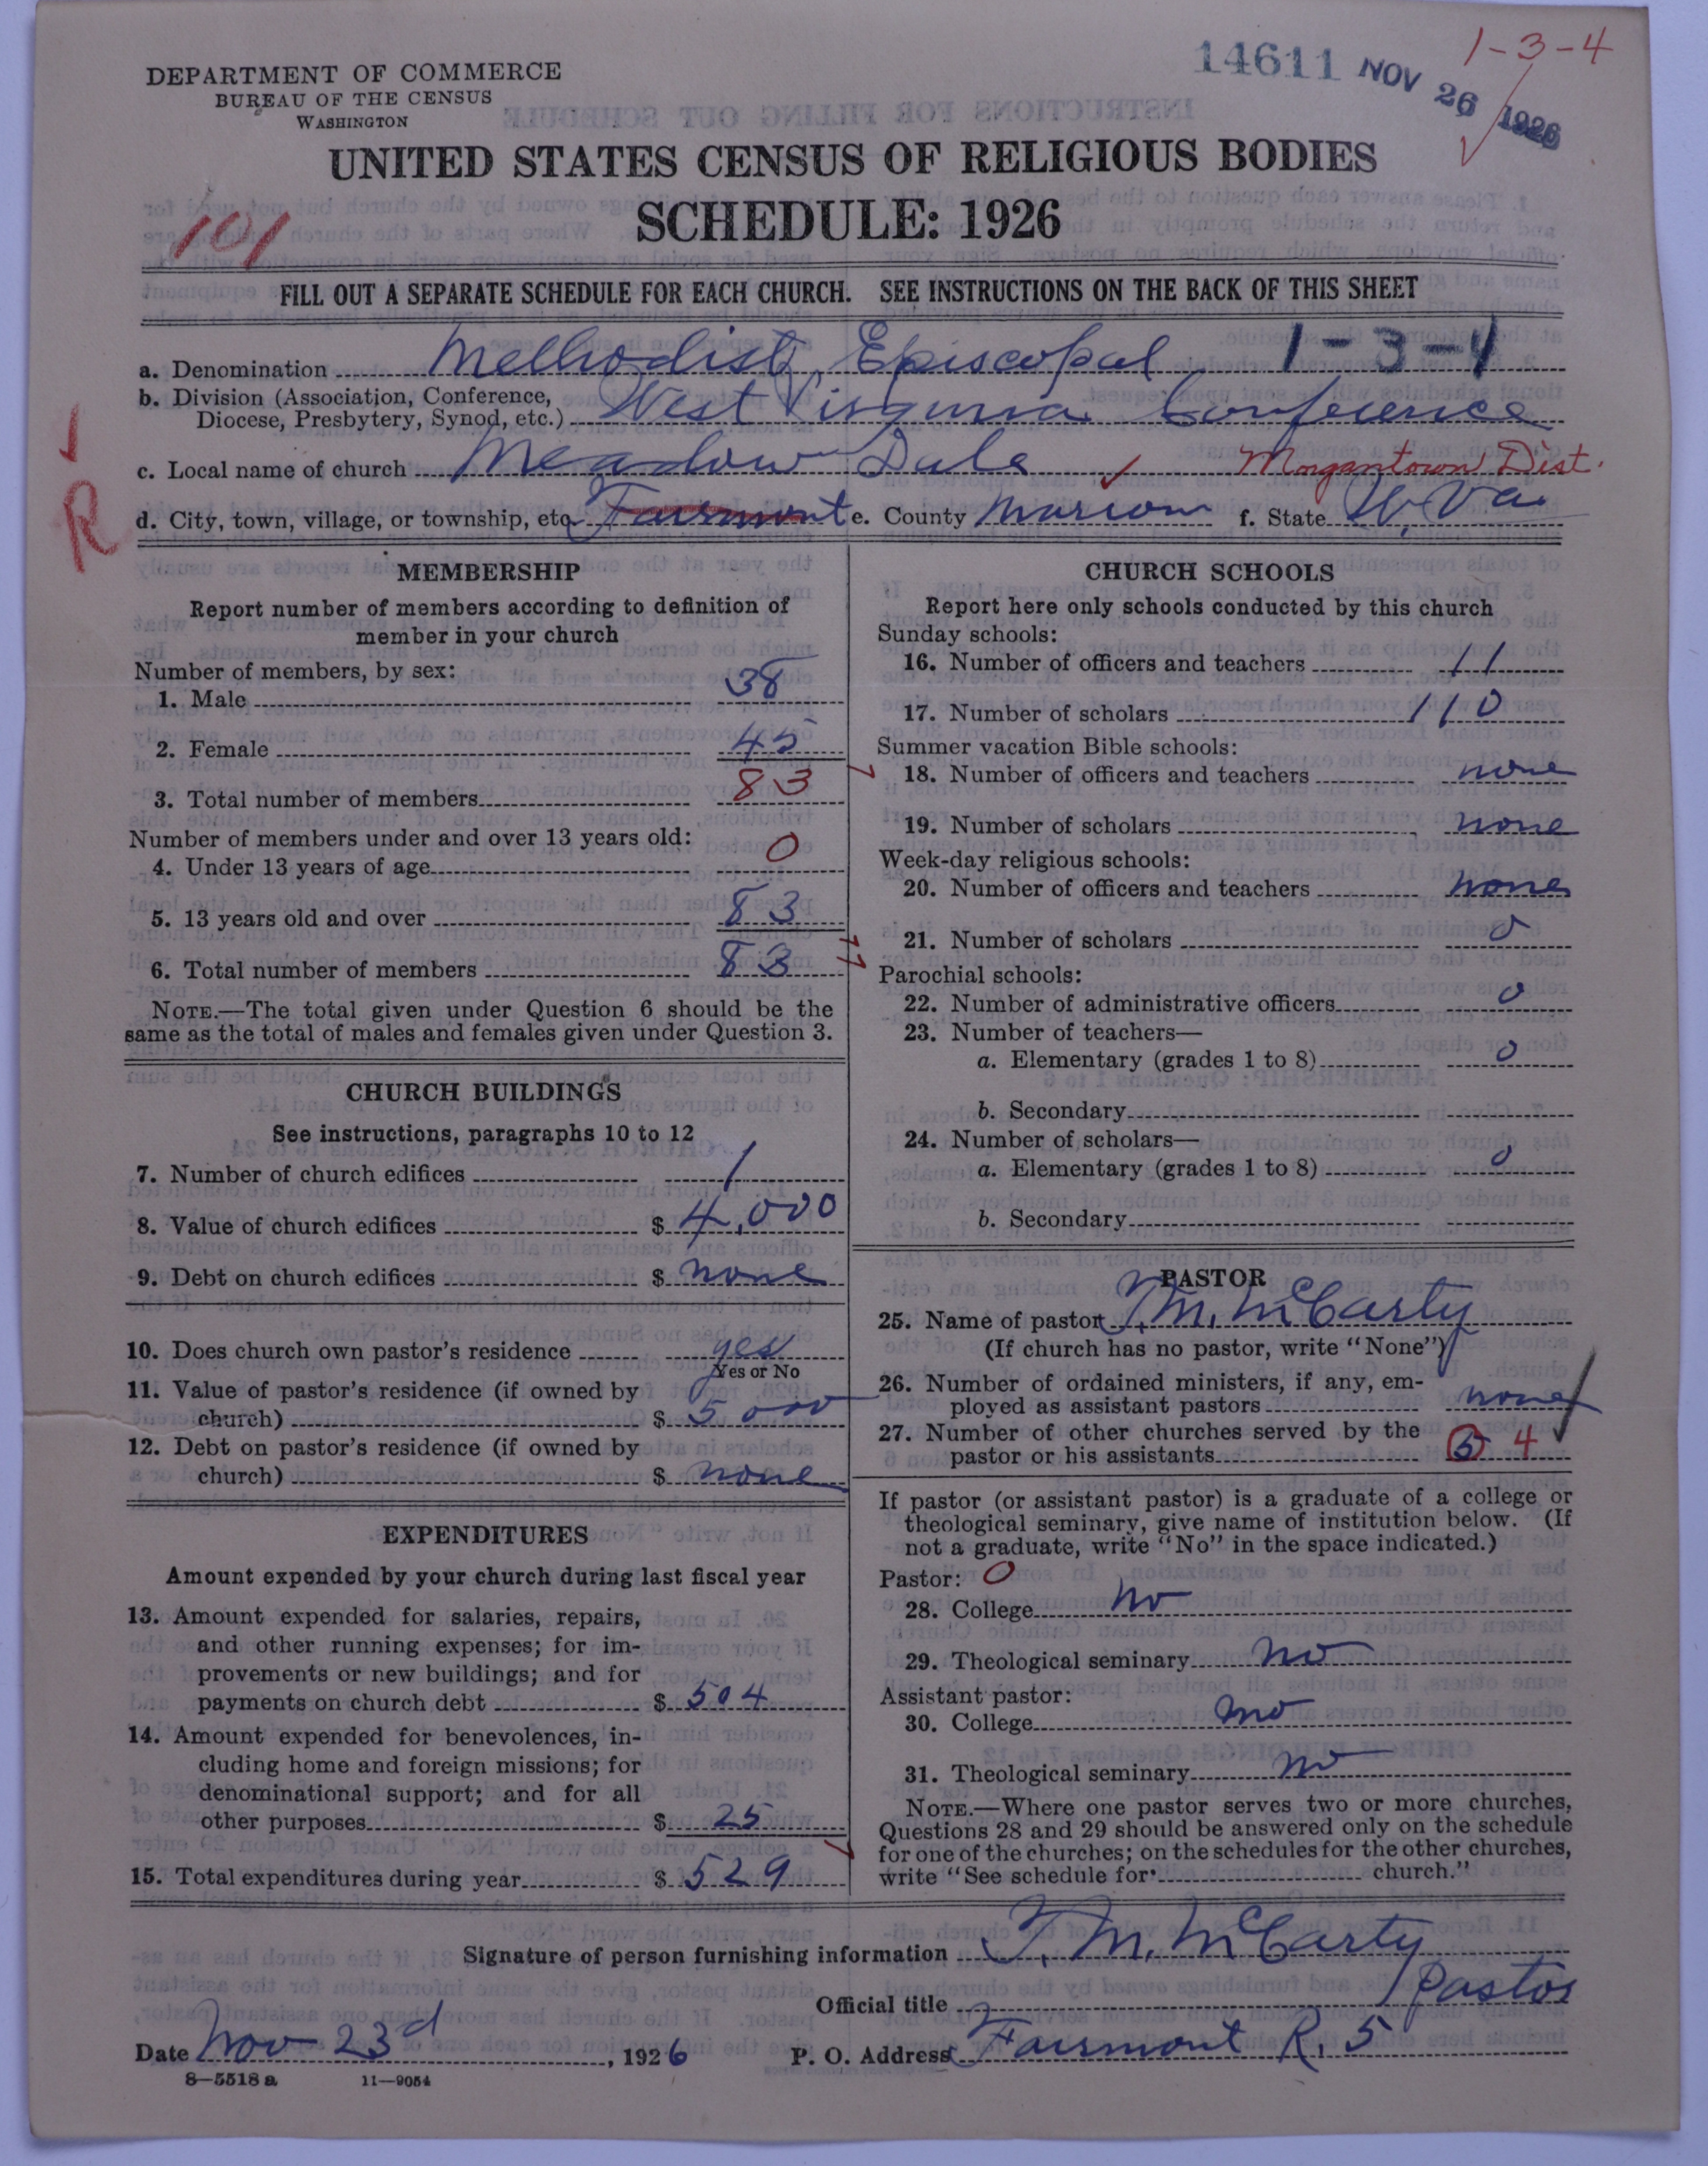 1-3-4
14611 NOV 26 1926
DEPARTMENT OF COMMERCE
BUREAU OF THE CENSUS
WASHINGTON
UNITED STATES CENSUS OF RELIGIOUS BODIES
SCHEDULE: 1926
101
FILL OUT A SEPARATE SCHEDULE FOR EACH CHURCH. SEE INSTRUCTIONS ON THE BACK OF THIS SHEET
a. Denomination Methodist Episcopal 1-3-4
b. Division (Association, Conference,
Diocese, Presbytery, Synod, etc.) West Virginia Conference
c. Local name of church Meadow Dale Morgantown Dist.
R
d. City, town, village, or township, etc. Fairmont e. County Marion f. State W. Va
MEMBERSHIP
Report number of members according to definition of
member in your church
Number of members, by sex:
1. Male 38
2. Female 45
3. Total number of members 83
Number of members under and over 13 years old:
4. Under 13 years of age 0
5. 13 years old and over 83
6. Total number of members 83
NOTE.—The total given under Question 6 should be the
same as the total of males and females given under Question 3.
CHURCH BUILDINGS
See instructions, paragraphs 10 to 12
7. Number of church edifices 1
8. Value of church edifices $ 4,000
9. Debt on church edifices $ none
10. Does church own pastor's residence yes
Yes or No
11. Value of pastor's residence (if owned by
church) $ 5000
12. Debt on pastor's residence (if owned by
church) $ none
EXPENDITURES
Amount expended by your church during last fiscal year
13. Amount expended for salaries, repairs,
and other running expenses; for im-
provements or new buildings; and for
payments on church debt $ 504
14. Amount expended for benevolences, in-
cluding home and foreign missions; for
denominational support; and for all
other purposes $ 25
15. Total expenditures during year $ 529
CHURCH SCHOOLS
Report here only schools conducted by this church
Sunday schools:
16. Number of officers and teachers 11
17. Number of scholars 110
Summer vacation Bible schools:
18. Number of officers and teachers none
19. Number of scholars none
Week-day religious schools:
20. Number of officers and teachers none
21. Number of scholars 0
Parochial schools:
22. Number of administrative officers 0
23. Number of teachers—
a. Elementary (grades 1 to 8) 0
b. Secondary
24. Number of scholars—
a. Elementary (grades 1 to 8) 0
b. Secondary
PASTOR
25. Name of pastor T. M. McCarty
(If church has no pastor, write "None")
26. Number of ordained ministers, if any, em-
ployed as assistant pastors none
27. Number of other churches served by the
pastor or his assistants 5 4
If pastor (or assistant pastor) is a graduate of a college or
theological seminary, give name of institution below. (If
not a graduate, write "No" in the space indicated.)
Pastor: 0
28. College no
29. Theological seminary no
Assistant pastor:
30. College no
31. Theological seminary no
NOTE.—Where one pastor serves two or more churches,
Questions 28 and 29 should be answered only on the schedule
for one of the churches; on the schedules for the other churches,
write "See schedule for church."
Signature of person furnishing information T. M. McCarty
Official title pastor
Date Nov 23d, 1926 P. O. Address Fairmont R. 5
8—5518 a 11—9054